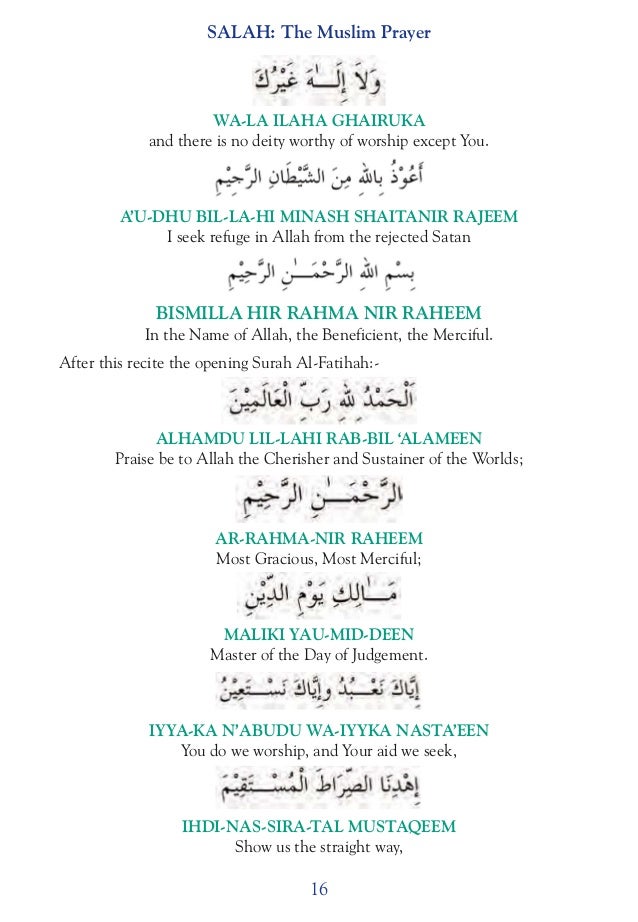 SALAH: The Muslim Prayer
وَلَا إِلَـٰهَ غَيْرُكَ
WA-LA ILAHA GHAIRUKA
and there is no deity worthy of worship except You.
أَعُوْذُ بِاللهِ مِنَ الشَّيْطَانِ الرَّجِيْمِ
A'U-DHU BIL-LA-HI MINASH SHAITANIR RAJEEM
I seek refuge in Allah from the rejected Satan
بِسْمِ اللهِ الرَّحْمَـٰنِ الرَّحِيْمِ
BISMILLA HIR RAHMA NIR RAHEEM
In the Name of Allah, the Beneficient, the Merciful.
After this recite the opening Surah Al-Fatihah:-
اَلْحَمْدُ لِلهِ رَبِّ الْعَالَمِيْنَ
ALHAMDU LIL-LAHI RAB-BIL 'ALAMEEN
Praise be to Allah the Cherisher and Sustainer of the Worlds;
الرَّحْمَـٰنِ الرَّحِيْمِ
AR-RAHMA-NIR RAHEEM
Most Gracious, Most Merciful;
مَـٰالِكِ يَوْمِ الدِّيْنِ
MALIKI YAU-MID-DEEN
Master of the Day of Judgement.
إِيَّاكَ نَعْـبُدُ وإِيَّاكَ نَسْـتَعِيْنُ
IYYA-KA N'ABUDU WA-IYYKA NASTA'EEN
You do we worship, and Your aid we seek,
إِهْدِنَا الصِّرَاطَ الْمُسْـتَقِيْمَ
IHDI-NAS-SIRA-TAL MUSTAQEEM
Show us the straight way,
16